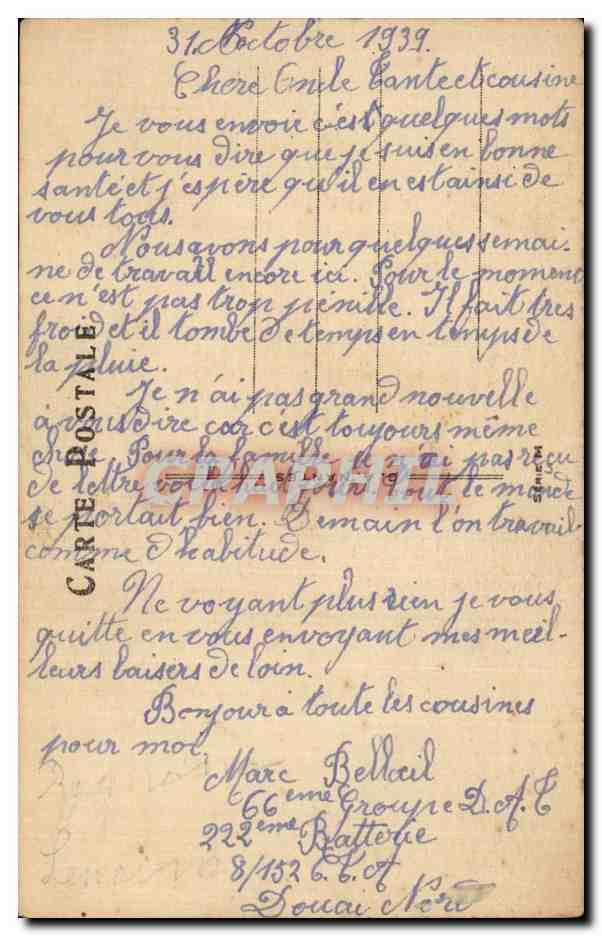 31. Octobre 1939.
Chere Oncle Tante et cousine
Je vous envoie c'est quelques mots
pour vous dire que je suis en bonne
santé et j'espère qu'il en est ainsi de
vous tous.
Nous avons pour quelques semai-
ne de travail encore ici. Pour le moment
ce n'est pas trop pénille. Il fait tres
froid et il tombe de temps en temps de
la pluie.
Je n'ai pas grand nouvelle
à vous dire car c'est toujours même
chose. Pour la famille je n'ai pas reçu
de lettre tout le monde
se portait bien. Demain l'on travail
comme d'habitude.
Ne voyant plus rien je vous
quitte en vous envoyant mes meil-
leurs baisers de loin.
Bonjour a toute les cousines
pour moi.
Marc Bellœil
66eme Groupe D.A.T
222eme Batterie
8/152 C.T.A
Douai Nord
CARTE POSTALE
SERIE M
CPAPHIL